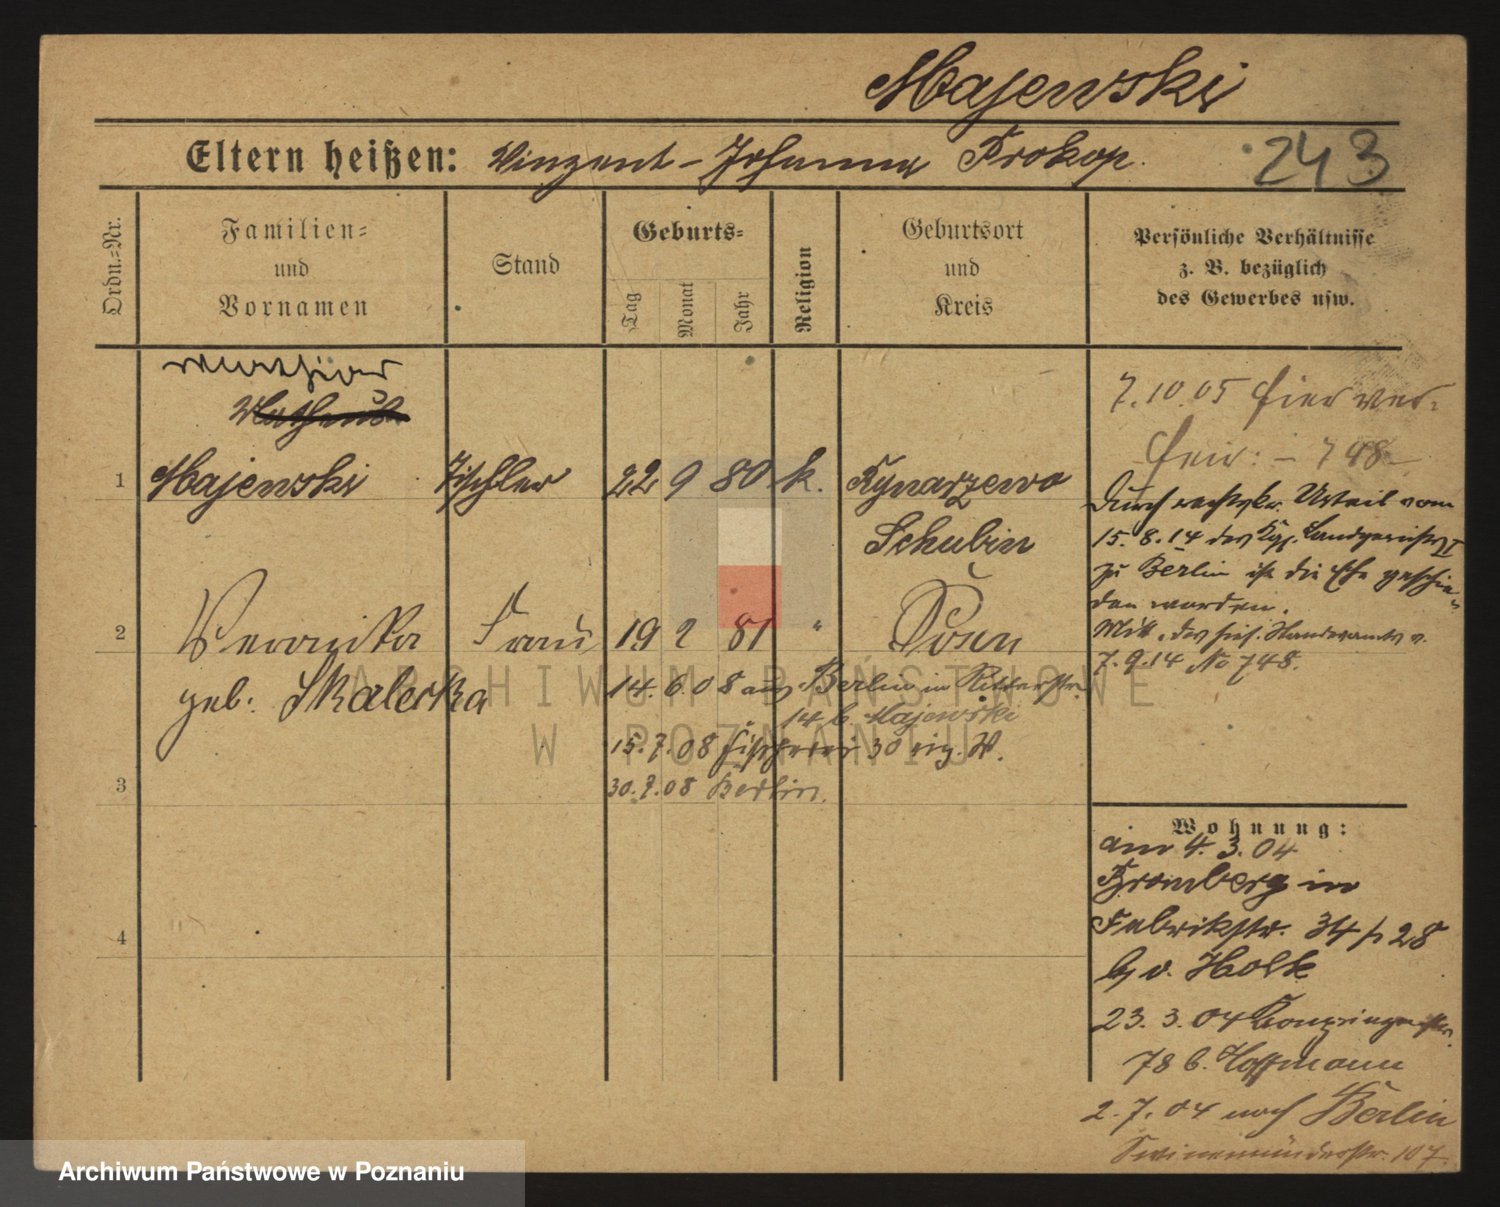 Majewski
Eltern heißen: Vinzent - Johanna Prokop.
243
Ordn.-Nr.
Familien-
und
Vornamen
Stand
Geburts-
Tag
Monat
Jahr
Religion
Geburtsort
und
Kreis
Persönliche Verhältnisse
z. B. bezüglich
des Gewerbes usw.
Mathäus
1 Majewski Tischler 22 9 80 k. Rynarzewo
Schubin
2 Veronika Frau 19 2 81 " Posen
geb. Skalerka
14. 6. 08 aus Berlin in Ritterstr.
14 b. Majewski
15. 7. 08 Fischerei 30 eig. W.
30. 7. 08 Berlin.
3
4
7. 10. 05 hier ver-
heir: - 748 -
Durch rechtskr. Urteil vom
15. 8. 14 des Kgl. Landgerichts I
zu Berlin ist die Ehe geschie-
den worden.
Mitt. des hies. Standesamts v.
7. 9. 14 No 748.
Wohnung:
am 4. 3. 04
Bromberg in
Fabrikstr. 34 28
b/ v. Holk
23. 3. 04
78 b. Hoffmann
2. 7. 04 nach Berlin
Swinemünderstr. 107
ARCHIWUM PAŃSTWOWE
W POZNANIU
Archiwum Państwowe w Poznaniu